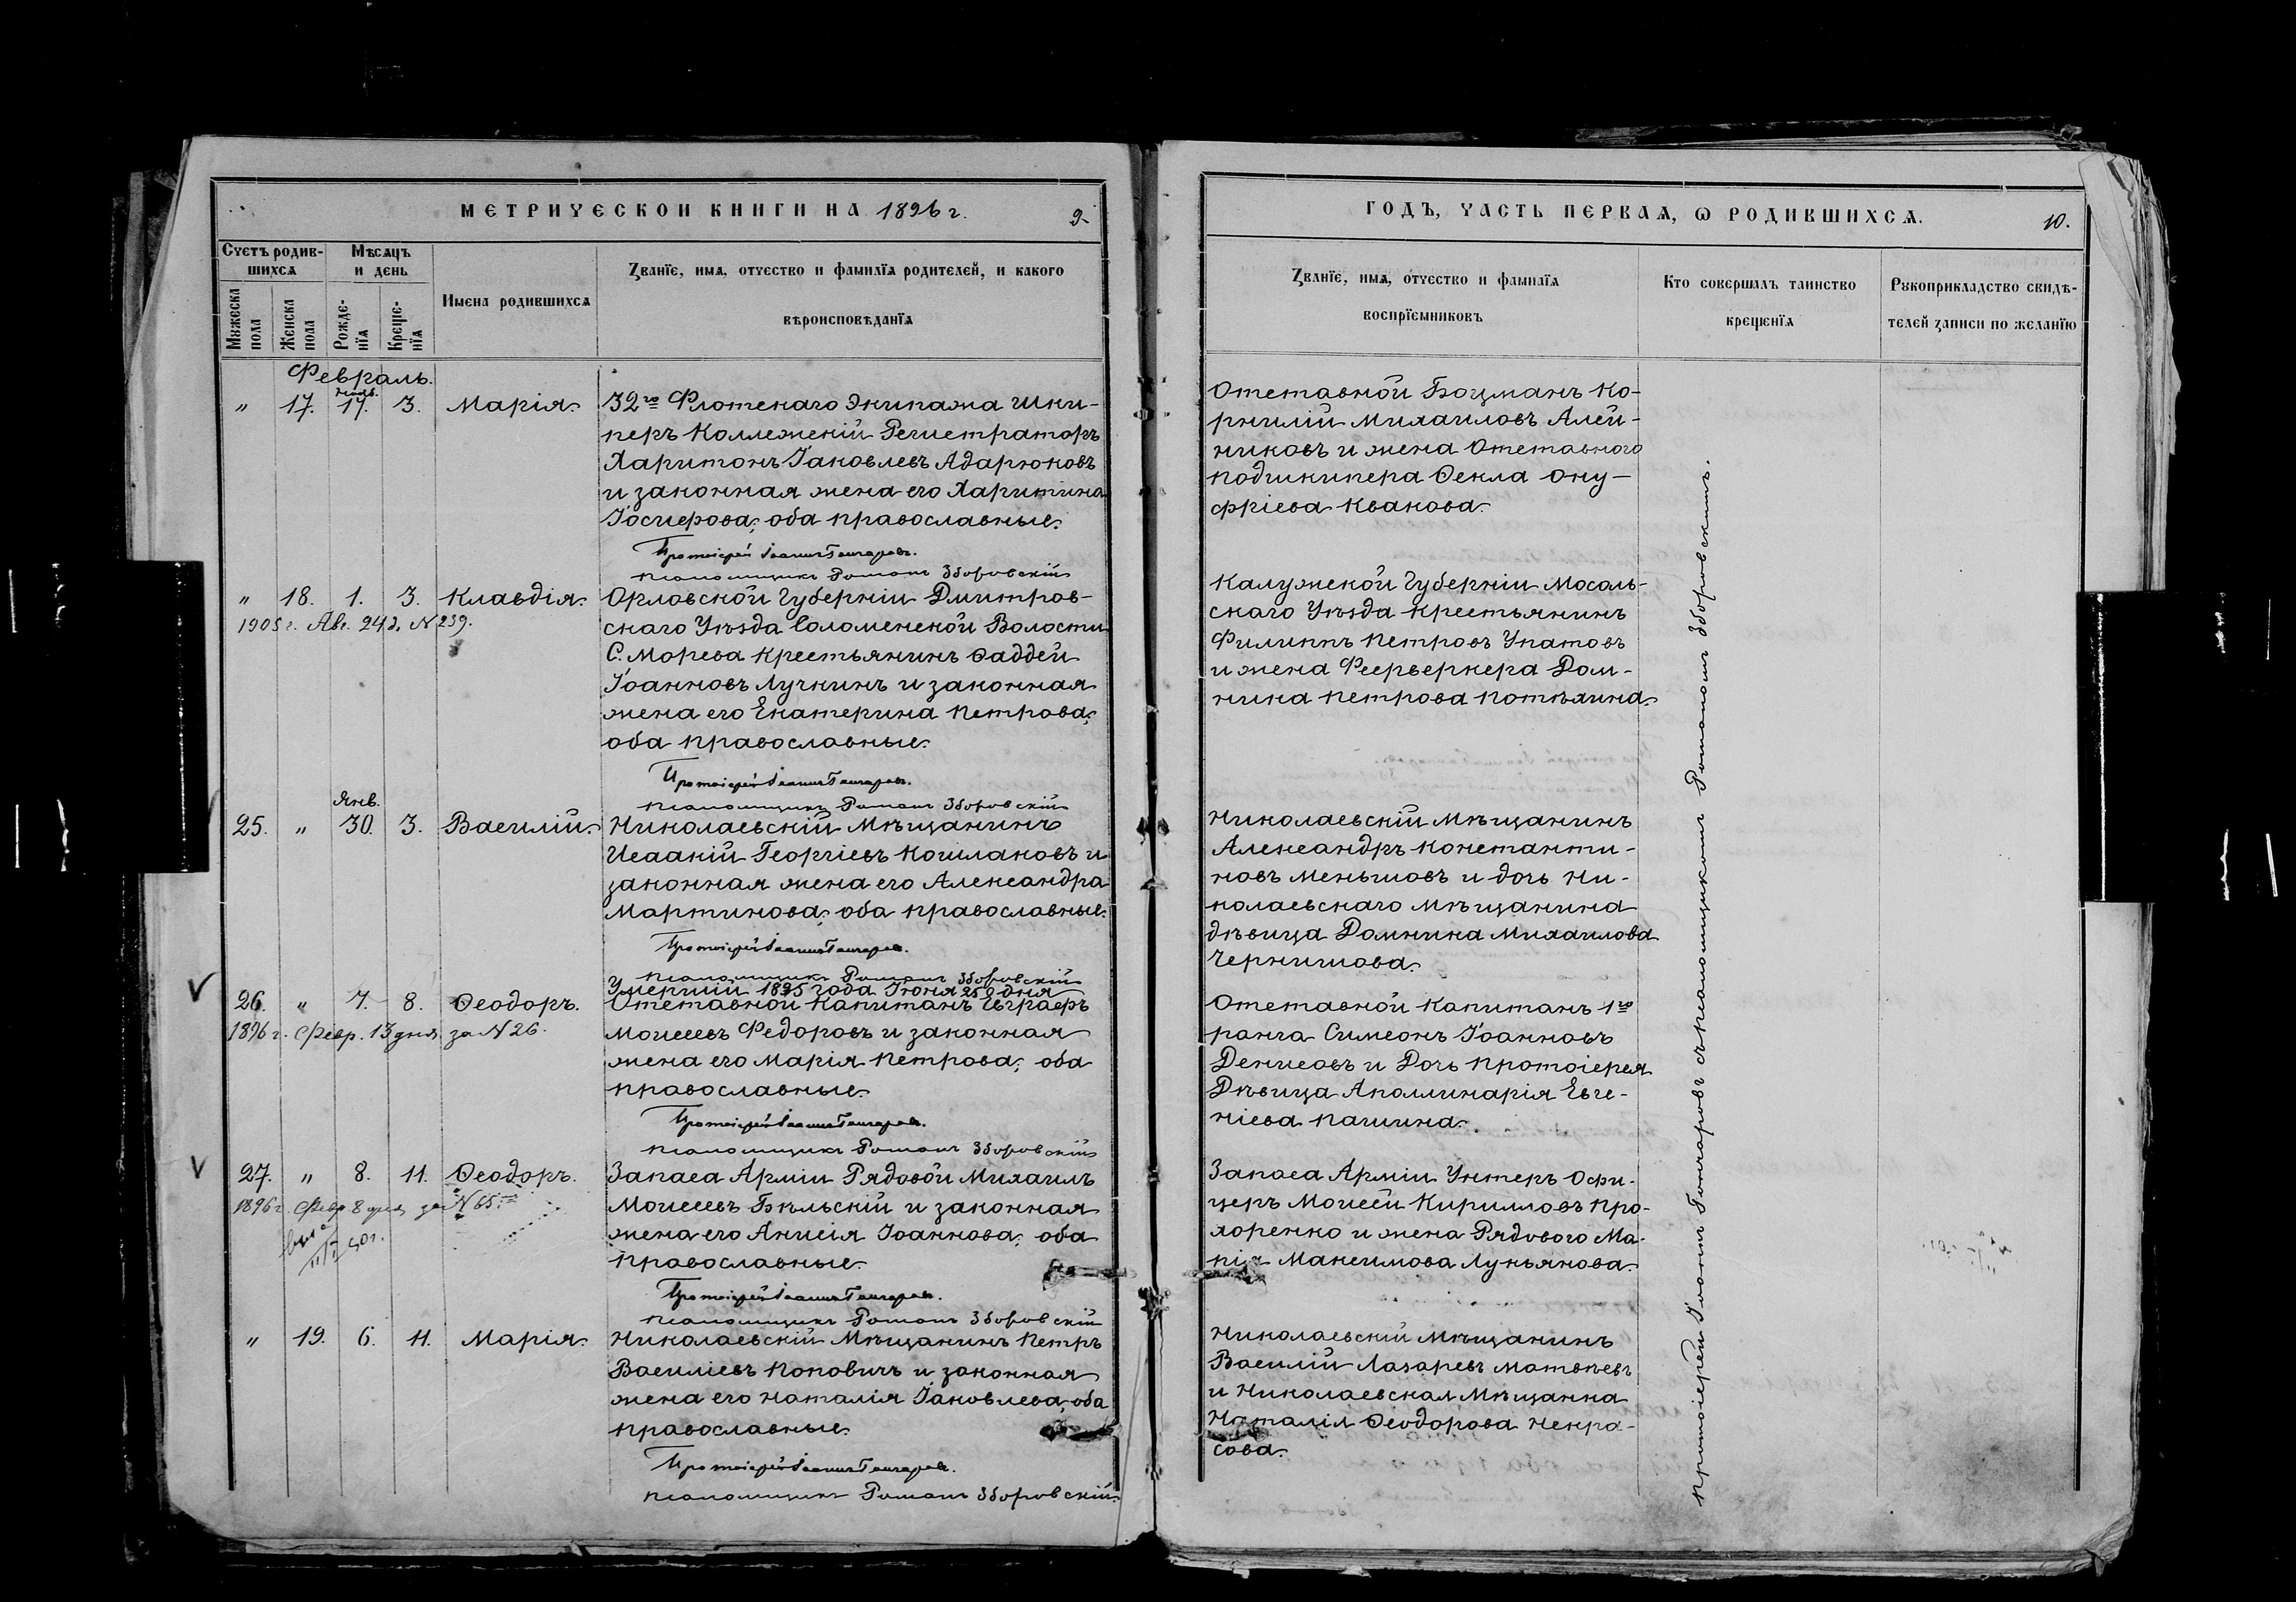 МЕТРИЧЕСКОИ КНИГИ НА 1896 г. 9.
Счетъ родив-
шихся
Мѣсяцъ
и день
Мужеска пола
Женска пола
Рожде-
нїя
Креще-
нїя
Имена родившихся
Званїе, имя, отчество и фамилїя родителей, и какого
вѣроисповѣданїя
Февраль.
" 17. 17. 3. Марія. 32го Флотскаго Экипажа Шки-
перъ Коллежскій Регистраторъ
Харитонъ Іаковлевъ Адарюковъ
и законная жена его Харитина
Іосифова; оба православные.
Протоіерей Іоаннъ Гончаровъ.
Псаломщикъ Романъ Зборовскій
" 18. 1. 3. Клавдія. Орловской Губерніи Дмитров-
1905 г. Авг. 24 д. N 239.
скаго Уѣзда Соломенской Волости
С. Морева Крестьянинъ Ѳаддей
Іоанновъ Лучкинъ и законная
жена его Екатерина Петрова;
оба православные.
Протоіерей Іоаннъ Гончаровъ.
Псаломщикъ Романъ Зборовскій
Янв.
25. " 30. 3. Василій. Николаевскій Мѣщанинъ
Исаакій Георгіевъ Кошлаковъ и
законная жена его Александра
Мартинова; оба православные.
Протоіерей Іоаннъ Гончаровъ.
Псаломщикъ Романъ Зборовскій
Умершій 1895 года Іюня 25 дня
26. " 7. 8. Ѳеодоръ. Отставной Капитанъ Евграфъ
1896 г. Февр. 13 дня за N 26.
Моисеевъ Федоровъ и законная
жена его Марія Петрова; оба
православные.
Протоіерей Іоаннъ Гончаровъ.
Псаломщикъ Романъ Зборовскій
27. " 8. 11. Ѳеодоръ. Запаса Арміи Рядовой Михаилъ
1896 г. Февр. 8 дня за N 65.
Моисеевъ Бѣльскій и законная
жена его Анисія Іоаннова; оба
православные.
Протоіерей Іоаннъ Гончаровъ.
Псаломщикъ Романъ Зборовскій
" 19. 6. 11. Марія. Николаевскій Мѣщанинъ Петръ
Василіевъ Поповичъ и законная
жена его Наталія Іаковлева; оба
православные.
Протоіерей Іоаннъ Гончаровъ.
Псаломщикъ Романъ Зборовскій
ГОДЪ, ЧАСТЬ ПЕРВАЯ, Ѡ РОДИВШИХСЯ. 10.
Званїе, имя, отчество и фамилїя
воспрїемниковъ
Кто совершалъ таинство
крещенїя
Рукоприкладство свидѣ-
телей записи по желанїю
Отставной Боцманъ Ко-
рнилій Михаиловъ Алей-
никовъ и жена Отставного
подшкипера Ѳекла Ону-
фріева Иванова.
Калужской Губерніи Мосаль-
скаго Уѣзда Крестьянинъ
Филиппъ Петровъ Упатовъ
и жена Феерверкера Дом-
нина Петрова Потѣхина.
Николаевскій Мѣщанинъ
Александръ Константи-
новъ Меньшовъ и дочь Ни-
колаевскаго Мѣщанина
дѣвица Домнина Михаилова
Чернишова.
Отставной Капитанъ 1го
ранга Симеонъ Іоанновъ
Денисовъ и Дочь Протоіерея
Дѣвица Аполлинарія Евге-
ніева Пашина.
Запаса Арміи Унтеръ Офи-
церъ Моисей Кирилловъ Про-
хоренко и жена Рядового Ма-
рія Максимова Лукьянова.
Николаевскій Мѣщанинъ
Василій Лазаревъ Матвѣевъ
и Николаевская Мѣщанка
Наталія Ѳеодорова Некра-
сова.
Протоіерей Іоаннъ Гончаровъ съ псаломщикомъ Романомъ Зборовскимъ.